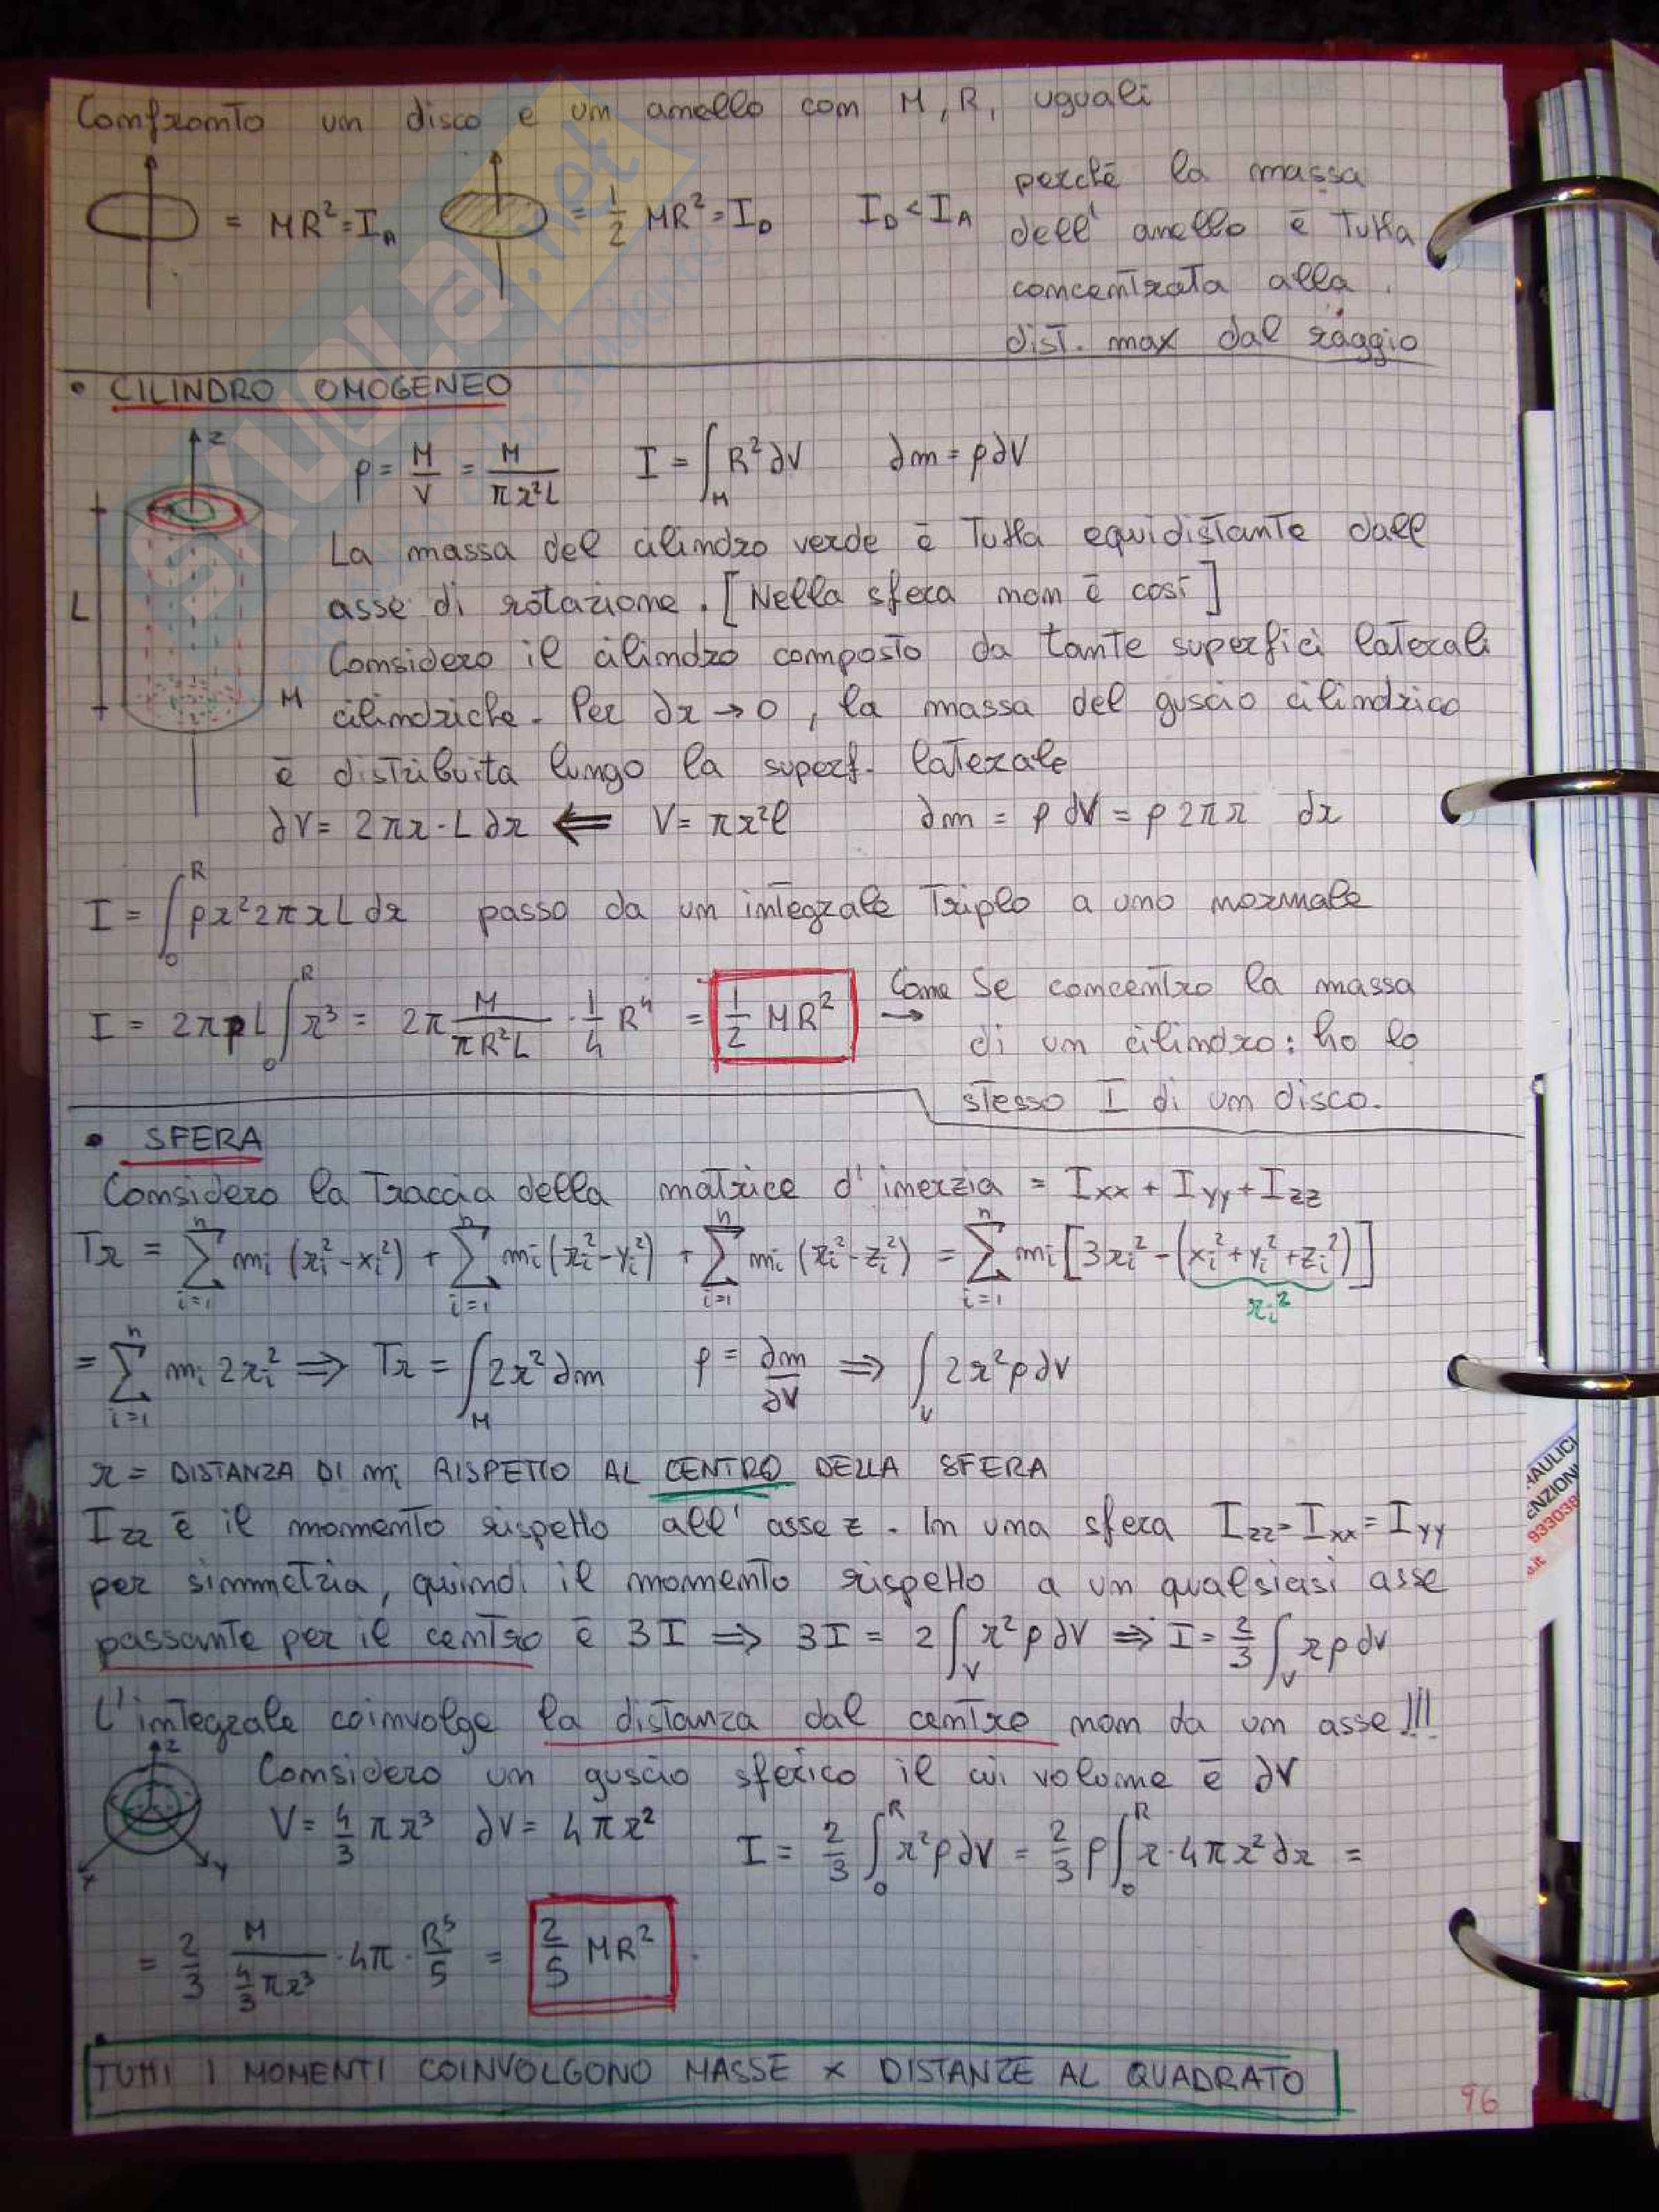 Confronto un disco e un anello con M, R, uguali
= MR²=I_A = 1/2 MR²=I_D I_D < I_A
perchè la massa
dell' anello è tutta
concentrata alla
dist. max dal raggio
• CILINDRO OMOGENEO
z
ρ = M/V = M/(πr²L) I = ∫_M R²∂V ∂m = ρ∂V
La massa del cilindro verde è tutta equidistante dall
asse di rotazione. [Nella sfera non è così]
L
Considero il cilindro composto da tante superfici laterali
M
cilindriche. Per ∂r → 0, la massa del guscio cilindrico
è distribuita lungo la superf. laterale
∂V = 2πr·L∂r ⇐ V = πr²l ∂m = ρ dV = ρ2πr dr
I = ∫_0^R ρr²2πrL dr passo da un integrale triplo a uno normale
I = 2πρL∫_0^R r³ = 2π M/(πR²L) · 1/4 R⁴ = 1/2 MR² →
Come se concentro la massa
di un cilindro: ho lo
stesso I di un disco.
• SFERA
Considero la traccia della matrice d'inerzia = Ixx + Iyy + Izz
Tr = Σ_{i=1}^n mi (ri²-xi²) + Σ_{i=1}^n mi (ri²-yi²) + Σ_{i=1}^n mi (ri²-zi²) = Σ_{i=1}^n mi [3ri² - (xi²+yi²+zi²)]
ri²
= Σ_{i=1}^n mi 2ri² ⇒ Tr = ∫_M 2r²∂m ρ = ∂m/∂V ⇒ ∫_V 2r²ρ∂V
r = DISTANZA DI mi RISPETTO AL CENTRO DELLA SFERA
Izz è il momento rispetto all' asse z. In una sfera Izz=Ixx=Iyy
per simmetria, quindi il momento rispetto a un qualsiasi asse
passante per il centro è 3I ⇒ 3I = 2∫_V r²ρ∂V ⇒ I = 2/3 ∫_V rρdV
L'integrale coinvolge la distanza dal centro non da un asse!!!
z
Considero un guscio sferico il cui volume è ∂V
V = 4/3 πr³ ∂V = 4πr²
x y
I = 2/3 ∫_0^R r²ρ∂V = 2/3 ρ∫_0^R r·4πr²∂r =
= 2/3 M/(4/3 πr³) · 4π · R⁵/5 = 2/5 MR².
TUTTI I MOMENTI COINVOLGONO MASSE × DISTANZE AL QUADRATO
96
SKUOLA.net